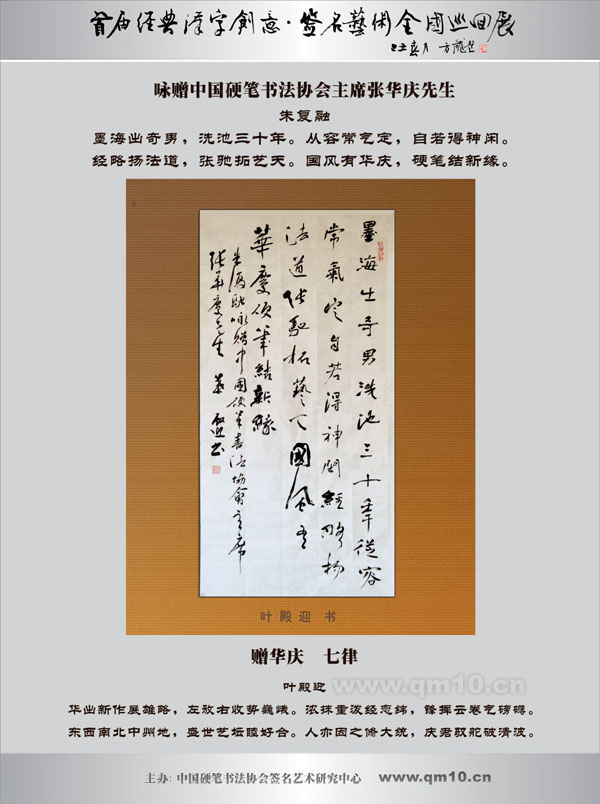 首届经典汉字创意·签名艺术全国巡回展
咏赠中国硬笔书法协会主席张华庆先生
朱复融
墨海出奇男，洗池三十年。从容常气定，自若得神闲。
经略扬法道，张驰拓艺天。国风有华庆，硬笔结新缘。
墨海出奇男洗池三十年從容
常氣定自若得神閑經略扬
法道张驰拓藝天國风有
華慶硬筆結新緣
朱復融咏赠中國硬笔書法協會主席
张華慶先生 葉殿迎书
叶殿迎 书
赠华庆 七律
叶殿迎
www.qm10.cn
华出新作展雄略，左敖右收势巍峨。浓抹重泼经态纬，锋挥云卷气磅礴。
东西南北中州地，盛世艺坛睦好合。人亦因之脩大统，庆君驭舵破清波。
主办：中国硬笔书法协会签名艺术研究中心 www.qm10.cn